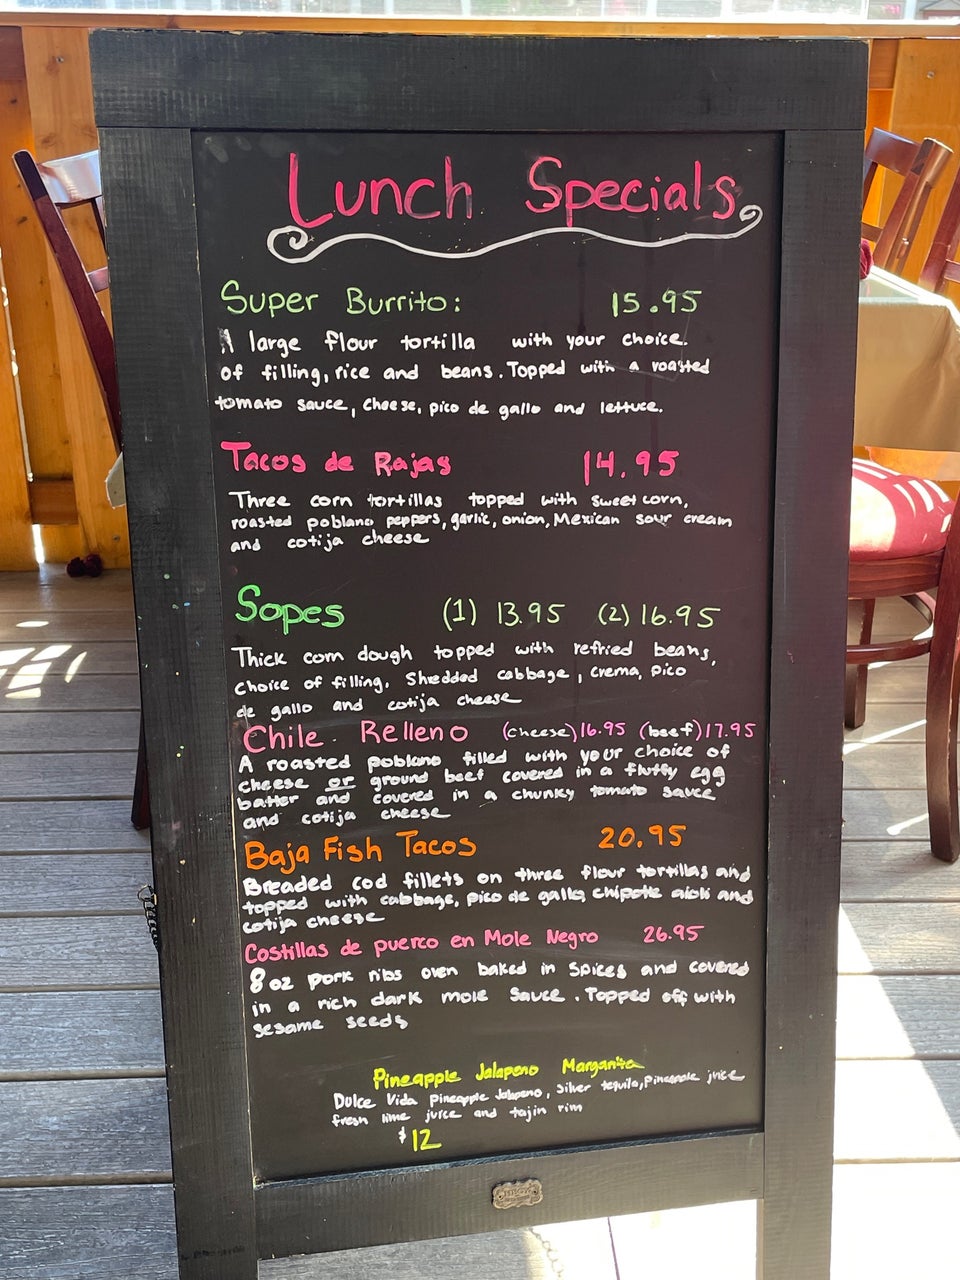 Lunch Specials
Super Burrito: 15.95
A large flour tortilla with your choice.
of filling, rice and beans. Topped with a roasted
tomato sauce, cheese, pico de gallo and lettuce.
Tacos de Rajas 14.95
Three corn tortillas topped with sweet corn,
roasted poblano peppers, garlic, onion, Mexican sour cream
and cotija cheese
Sopes (1) 13.95 (2) 16.95
Thick corn dough topped with refried beans,
choice of filling, Shredded cabbage, crema, pico
de gallo and cotija cheese
Chile Relleno (cheese) 16.95 (beef) 17.95
A roasted poblano filled with your choice of
cheese or ground beef covered in a fluffy egg
batter and covered in a chunky tomato sauce
and cotija cheese
Baja Fish Tacos 20.95
Breaded cod fillets on three flour tortillas and
topped with cabbage, pico de gallo, chipotle aioli and
cotija cheese
Costillas de puerco en Mole Negro 26.95
8 oz pork ribs oven baked in spices and covered
in a rich dark mole sauce. Topped off with
sesame seeds
Pineapple Jalapeno Margarita
Dulce Vida pineapple Jalapeno, silver tequila, pineapple juice
fresh lime juice and tajin rim
$12